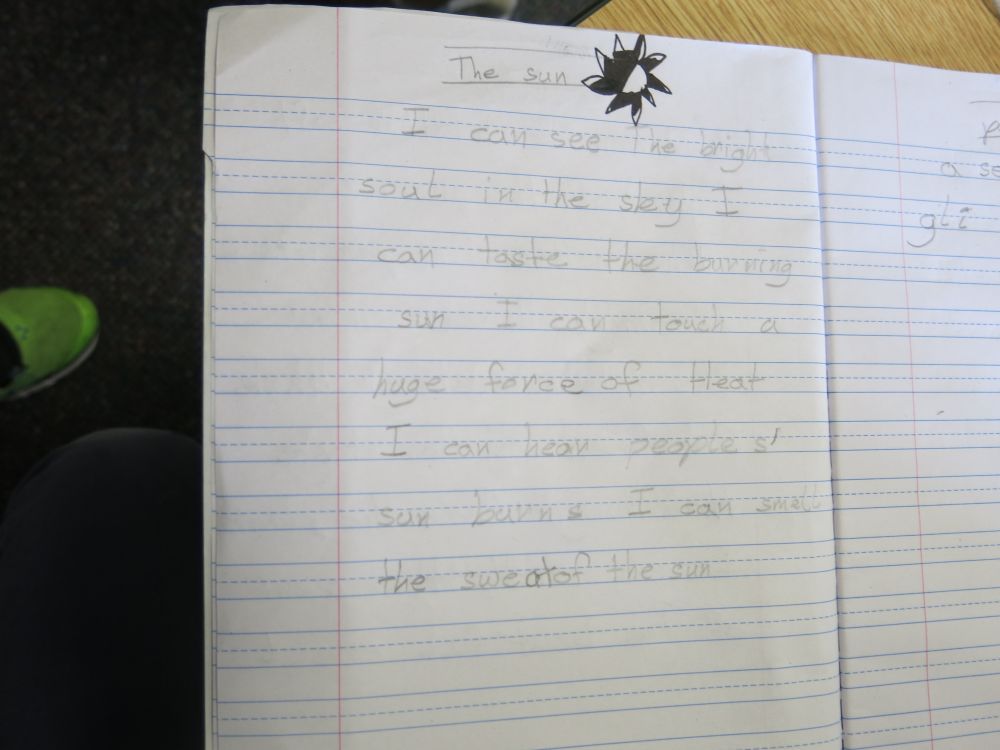 The sun
I can see The bright
soul in the sky I
can taste the burning
sun I can touch a
huge force of Heat
I can hear people s'
sun burns I can smell
the sweat of the sun
a se
gli